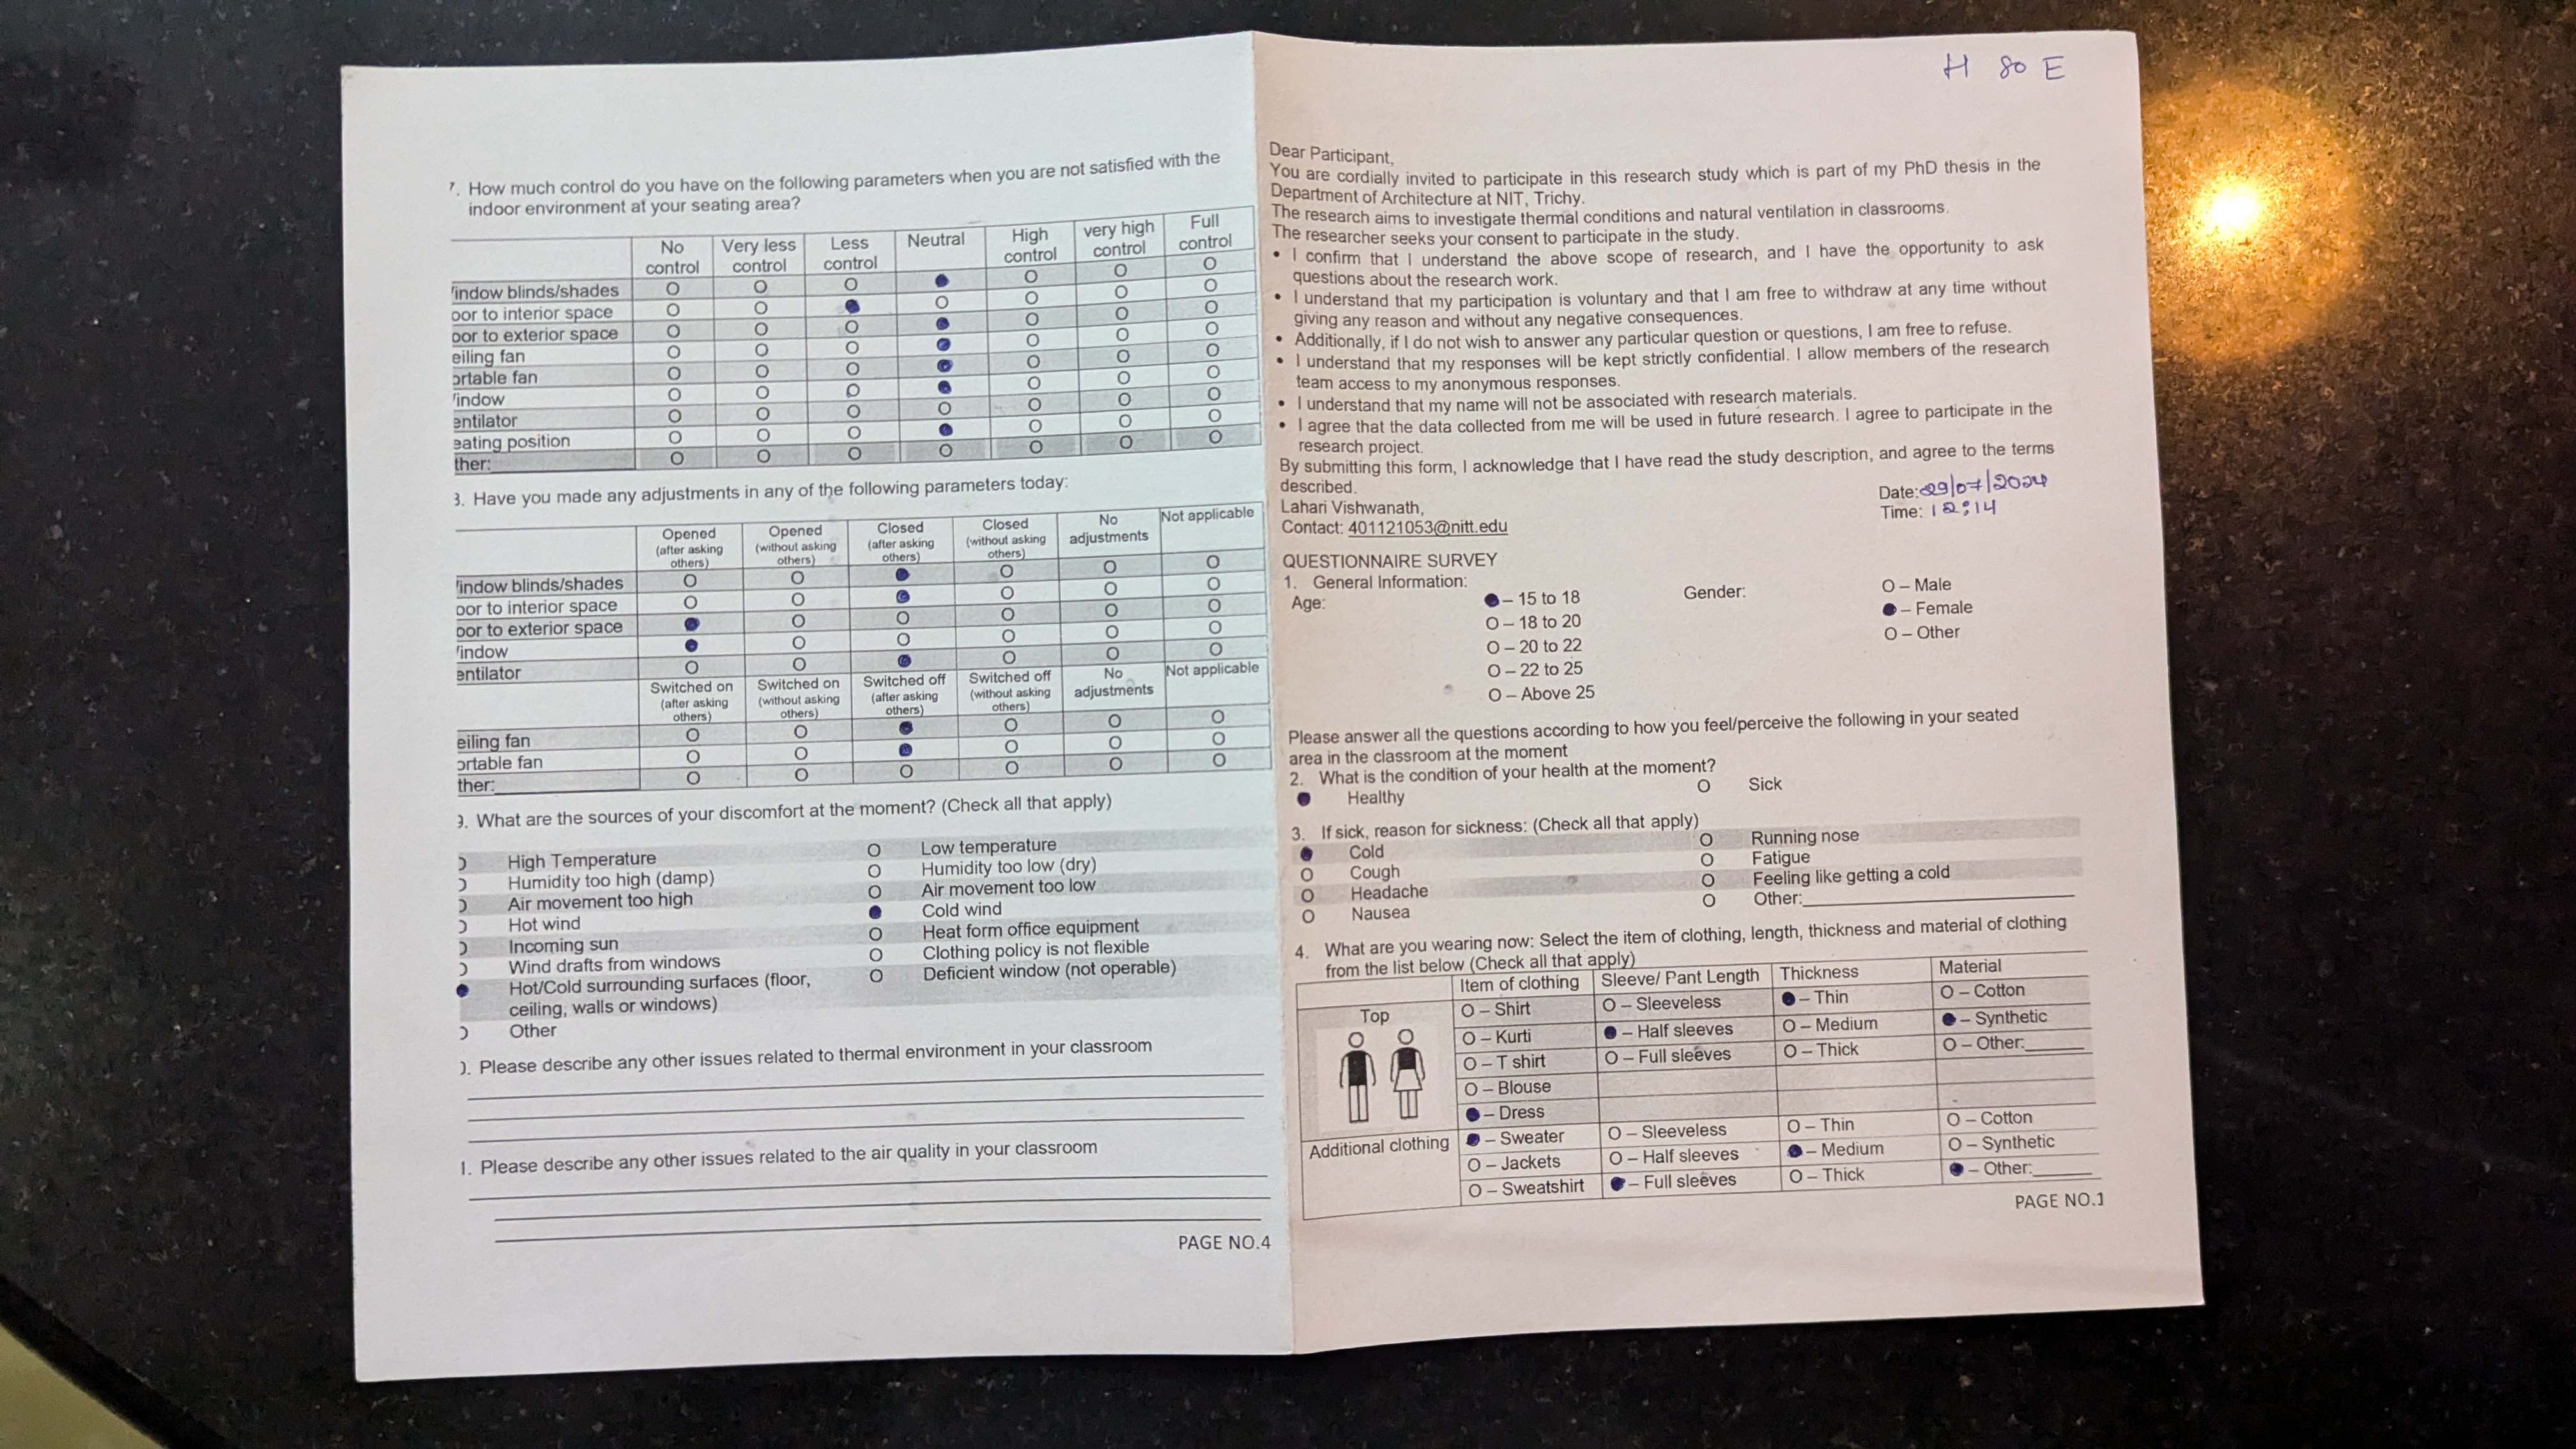 7. How much control do you have on the following parameters when you are not satisfied with the
indoor environment at your seating area?
No control Very less control Less control Neutral High control very high control Full control
indow blinds/shades O O O ● O O O
oor to interior space O O ● O O O O
oor to exterior space O O O ● O O O
eiling fan O O O ● O O O
ortable fan O O O ● O O O
indow O O O ● O O O
entilator O O O O O O O
eating position O O O ● O O O
ther: O O O O O O O
3. Have you made any adjustments in any of the following parameters today:
Opened (after asking others) Opened (without asking others) Closed (after asking others) Closed (without asking others) No adjustments Not applicable
indow blinds/shades O O ● O O O
oor to interior space O O ● O O O
oor to exterior space ● O O O O O
indow ● O O O O O
entilator O O ● O O O
Switched on (after asking others) Switched on (without asking others) Switched off (after asking others) Switched off (without asking others) No adjustments Not applicable
eiling fan O O ● O O O
ortable fan O O ● O O O
ther: O O O O O O
9. What are the sources of your discomfort at the moment? (Check all that apply)
High Temperature O Low temperature
Humidity too high (damp) O Humidity too low (dry)
Air movement too high O Air movement too low
Hot wind ● Cold wind
Incoming sun O Heat form office equipment
Wind drafts from windows O Clothing policy is not flexible
● Hot/Cold surrounding surfaces (floor, O Deficient window (not operable)
ceiling, walls or windows)
Other
). Please describe any other issues related to thermal environment in your classroom
1. Please describe any other issues related to the air quality in your classroom
PAGE NO.4
H 80 E
Dear Participant,
You are cordially invited to participate in this research study which is part of my PhD thesis in the
Department of Architecture at NIT, Trichy.
The research aims to investigate thermal conditions and natural ventilation in classrooms.
The researcher seeks your consent to participate in the study.
• I confirm that I understand the above scope of research, and I have the opportunity to ask
questions about the research work.
• I understand that my participation is voluntary and that I am free to withdraw at any time without
giving any reason and without any negative consequences.
• Additionally, if I do not wish to answer any particular question or questions, I am free to refuse.
• I understand that my responses will be kept strictly confidential. I allow members of the research
team access to my anonymous responses.
• I understand that my name will not be associated with research materials.
• I agree that the data collected from me will be used in future research. I agree to participate in the
research project.
By submitting this form, I acknowledge that I have read the study description, and agree to the terms
described.
Date: 29/07/2024
Lahari Vishwanath,
Time: 12:14
Contact: 401121053@nitt.edu
QUESTIONNAIRE SURVEY
1. General Information:
Age: ● – 15 to 18 Gender: O – Male
O – 18 to 20 ● – Female
O – 20 to 22 O – Other
O – 22 to 25
O – Above 25
Please answer all the questions according to how you feel/perceive the following in your seated
area in the classroom at the moment
2. What is the condition of your health at the moment?
● Healthy O Sick
3. If sick, reason for sickness: (Check all that apply)
● Cold O Running nose
O Cough O Fatigue
O Headache O Feeling like getting a cold
O Nausea O Other:
4. What are you wearing now: Select the item of clothing, length, thickness and material of clothing
from the list below (Check all that apply)
Item of clothing Sleeve/ Pant Length Thickness Material
Top O – Shirt O – Sleeveless ● – Thin O – Cotton
O – Kurti ● – Half sleeves O – Medium ● – Synthetic
O – T shirt O – Full sleeves O – Thick O – Other:
O – Blouse
● – Dress
Additional clothing ● – Sweater O – Sleeveless O – Thin O – Cotton
O – Jackets O – Half sleeves ● – Medium O – Synthetic
O – Sweatshirt ● – Full sleeves O – Thick ● – Other:
PAGE NO.1